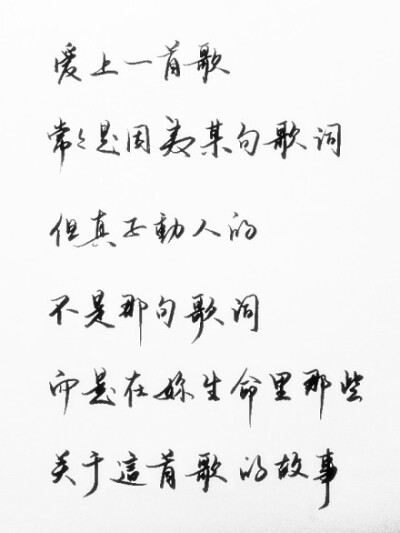 爱上一首歌
常々是因為某句歌词
但真正動人的
不是那句歌词
而是在妳生命里那些
关于這首歌的故事